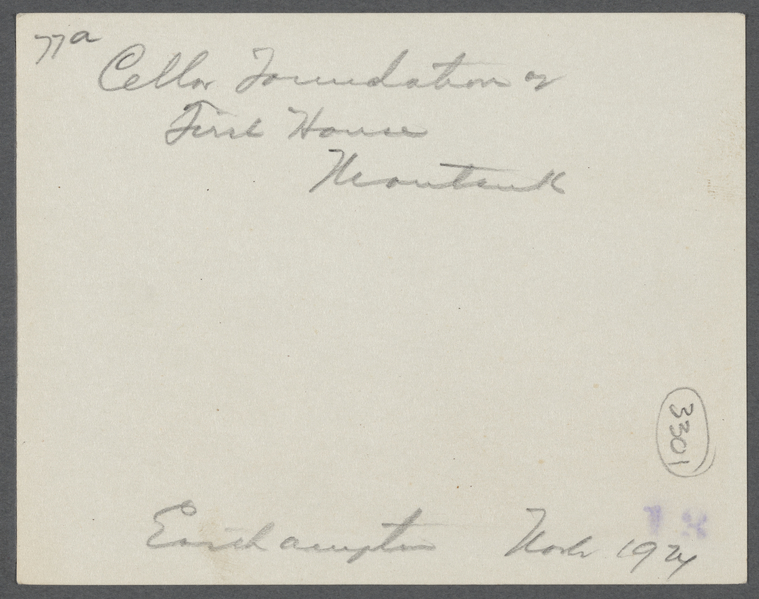 77a
Cellar Foundation of
First House
Montauk
3301
Easthampton Nov 1924